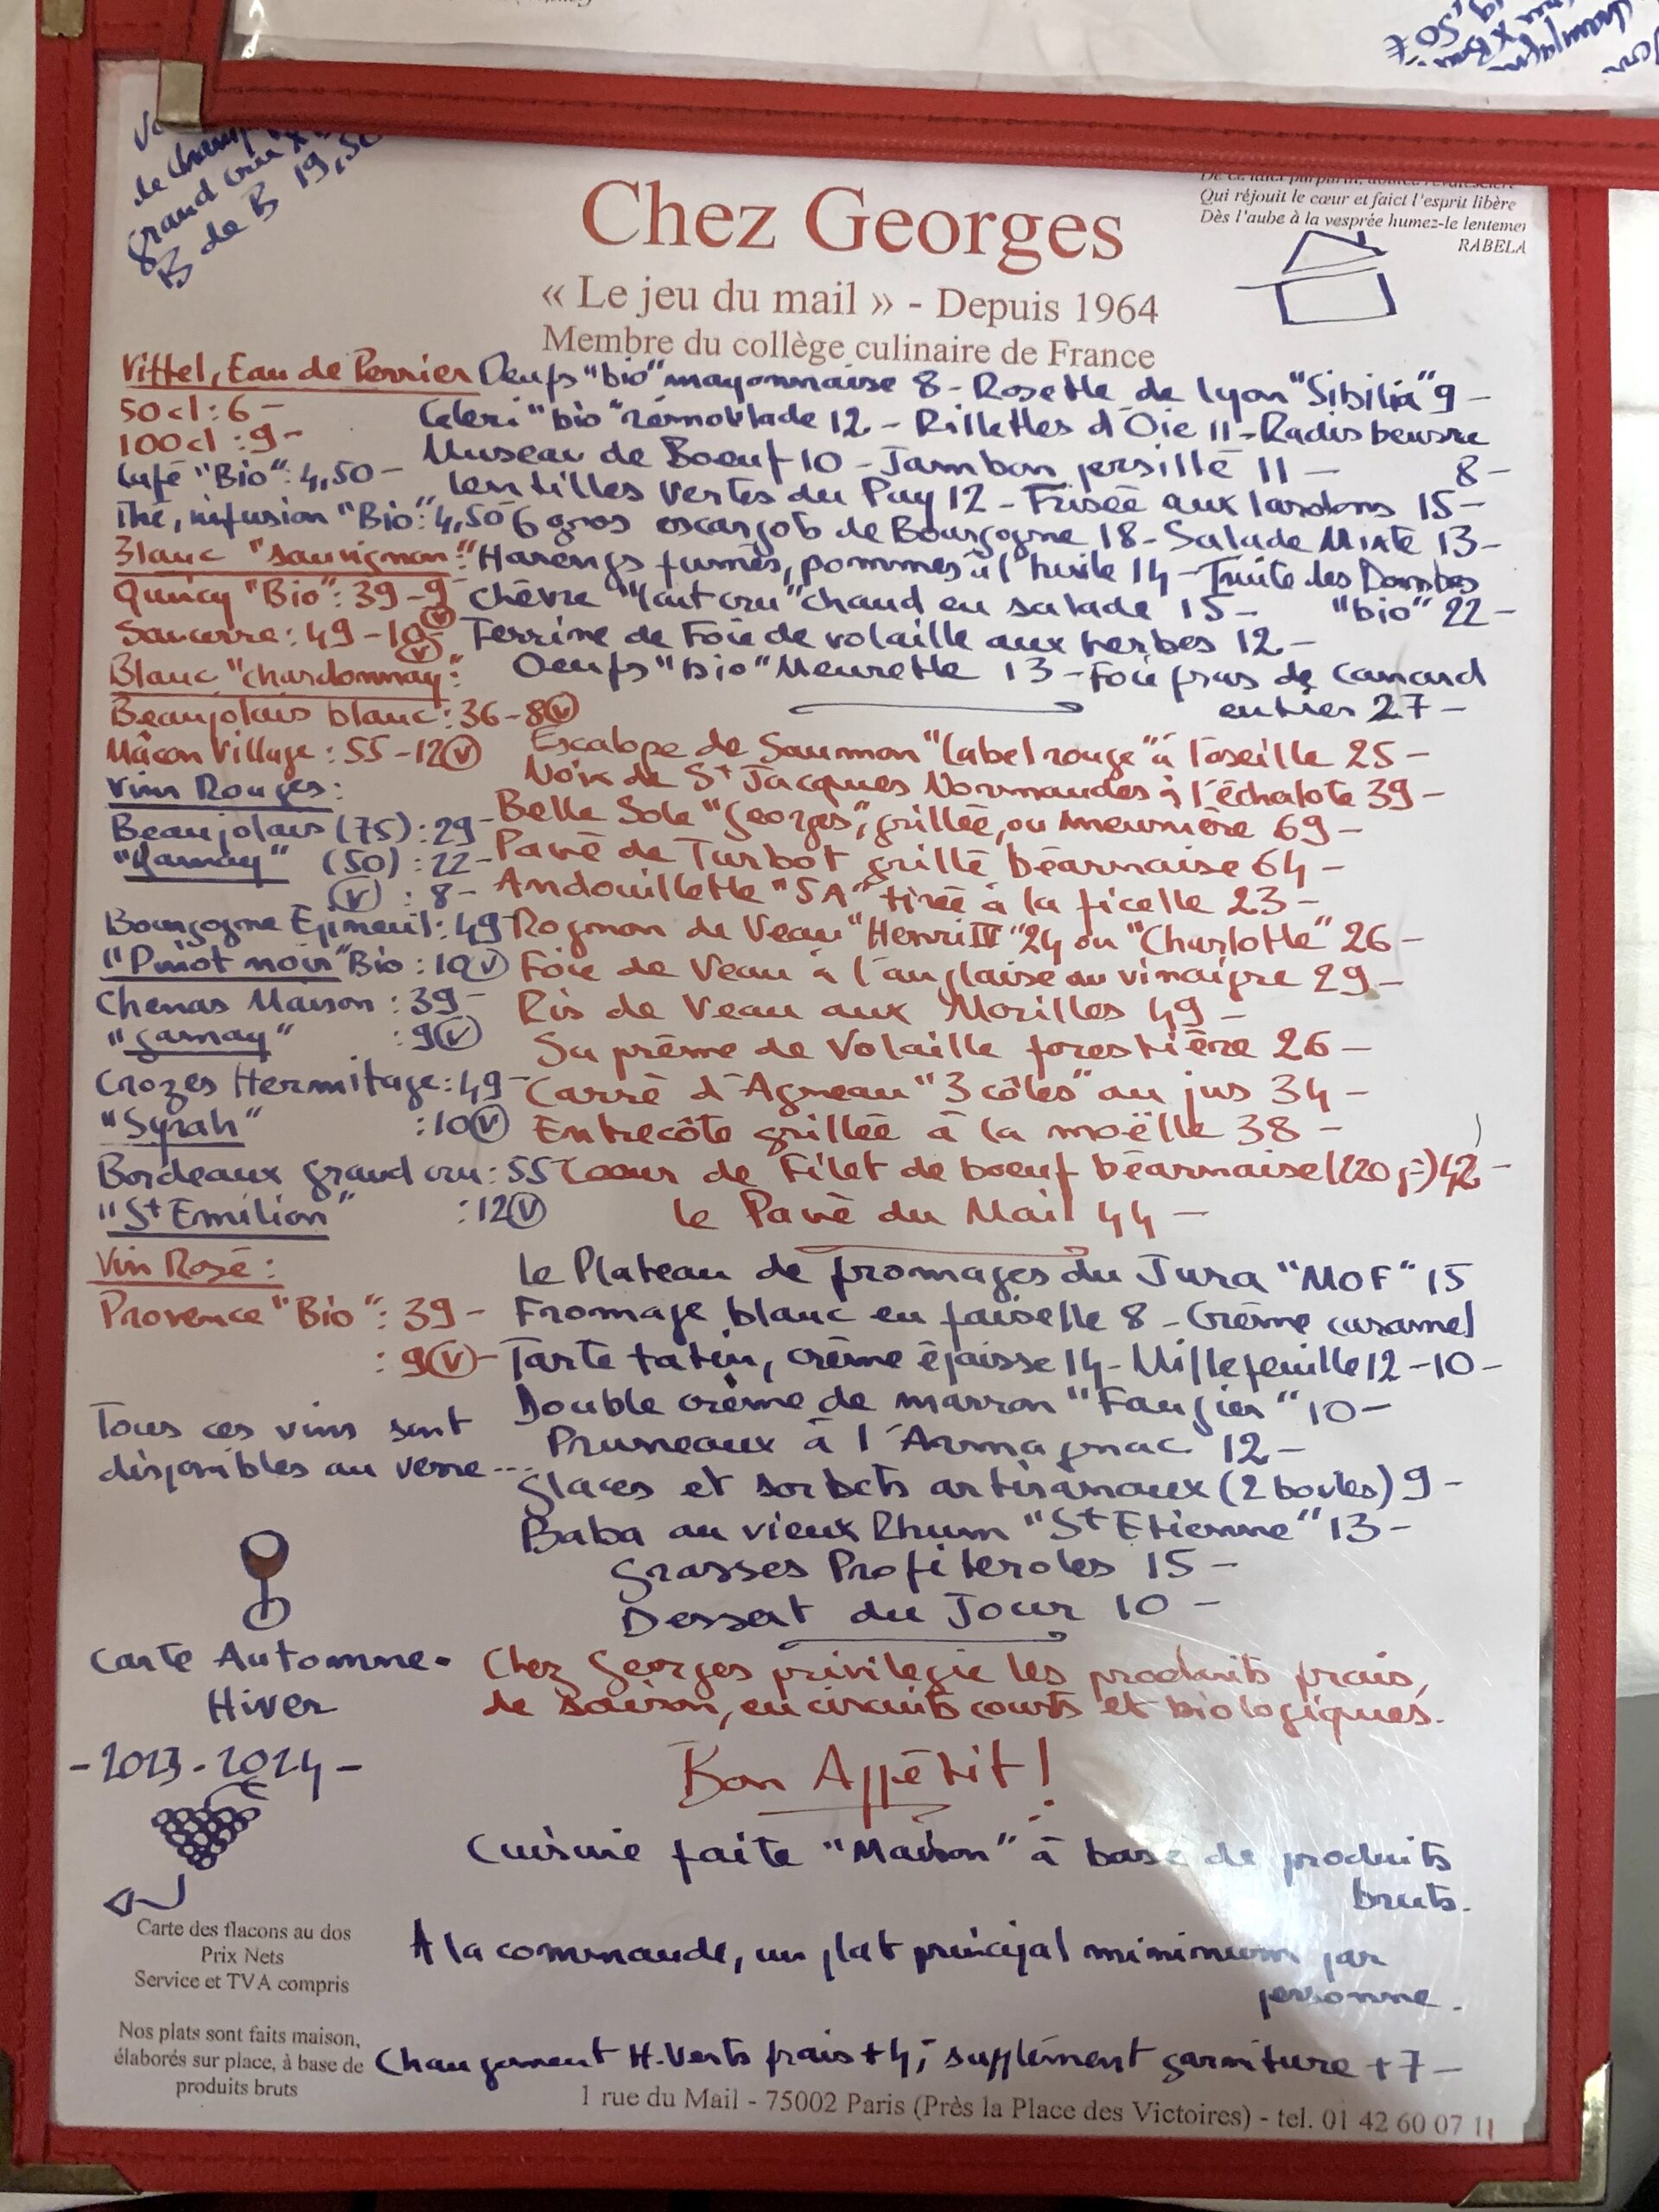 de Champ
grand cru
B de B 19,50
Qui réjouit le cœur et faict l'esprit libère
Dès l'aube à la vesprée humez-le lentemen
RABELA
Chez Georges
« Le jeu du mail » - Depuis 1964
Membre du collège culinaire de France
Vittel, Eau de Perrier
50cl : 6-
100cl : 9-
Café "Bio" : 4,50-
Thé, infusion "Bio" : 4,50
Blanc "sauvignon" :
Quincy "Bio" : 39-9-
Sancerre : 49-10- (V)
(V)
Blanc "chardonnay" :
Beaujolais blanc : 36-8(V)
Mâcon Village : 55-12(V)
Vins Rouges :
Beaujolais (75) : 29-
"Gamay" (50) : 22-
(V) : 8-
Bourgogne Epineuil : 49-
"Pinot noir" Bio : 10(V)
Chenas Maison : 39-
"gamay" : 9(V)
Crozes Hermitage : 49-
"Syrah" : 10(V)
Bordeaux grand cru : 55
"St Emilion" : 12(V)
Vin Rosé :
Provence "Bio" : 39-
: 9(V)-
Tous ces vins sont
disponibles au verre...
Carte Automne-
Hiver
-2023-2024-
Carte des flacons au dos
Prix Nets
Service et TVA compris
Nos plats sont faits maison,
élaborés sur place, à base de
produits bruts
Oeufs "bio" mayonnaise 8 - Rosette de Lyon "Sibilia" 9-
Céleri "bio" rémoulade 12 - Rillettes d'Oie 11 - Radis beurre
Museau de Boeuf 10 - Jambon persillé 11 - 8-
Lentilles vertes du Puy 12 - Frisée aux lardons 15-
6 gros escargots de Bourgogne 18 - Salade Mixte 13-
Harengs fumés, pommes à l'huile 14 - Truite des Dombes
Chèvre "lait cru" chaud en salade 15 - "bio" 22-
Terrine de Foie de volaille aux herbes 12-
Oeufs "Bio" Meurette 13 - Foie gras de canard
entier 27-
Escalope de Saumon "label rouge" à l'oseille 25-
Noix de St Jacques Normandes à l'échalote 39-
Belle Sole "Georges", grillée, ou meunière 69-
Pavé de Turbot grillé béarnaise 64-
Andouillette "5A" tirée à la ficelle 23-
Rognon de Veau "Henri IV" 24 ou "Charlotte" 26-
Foie de Veau à l'anglaise ou vinaigre 29-
Ris de Veau aux Morilles 49-
Suprême de Volaille forestière 26-
Carré d'Agneau "3 côtes" au jus 34-
Entrecôte grillée à la moëlle 38-
Coeur de Filet de boeuf béarnaise (220 gr) 42-
Le Pavé du Mail 44-
Le Plateau de fromages du Jura "MOF" 15
Fromage blanc en faiselle 8 - Crème caramel
Tarte tatin, crème épaisse 14 - Millefeuille 12 - 10-
Double crème de marron "Faugier" 10-
Pruneaux à l'Armagnac 12-
Glaces et sorbets artisanaux (2 boules) 9-
Baba au vieux Rhum "St Etienne" 13-
Grosses Profiteroles 15-
Dessert du Jour 10-
Chez Georges privilégie les produits frais,
de saison, en circuits courts et biologiques.
Bon Appétit !
Cuisine faite "Maison" à base de produits
bruts.
A la commande, un plat principal minimum par
personne.
Changement H.Verts frais +4 ; supplément garniture +7-
1 rue du Mail - 75002 Paris (Près la Place des Victoires) - tel. 01 42 60 07 11